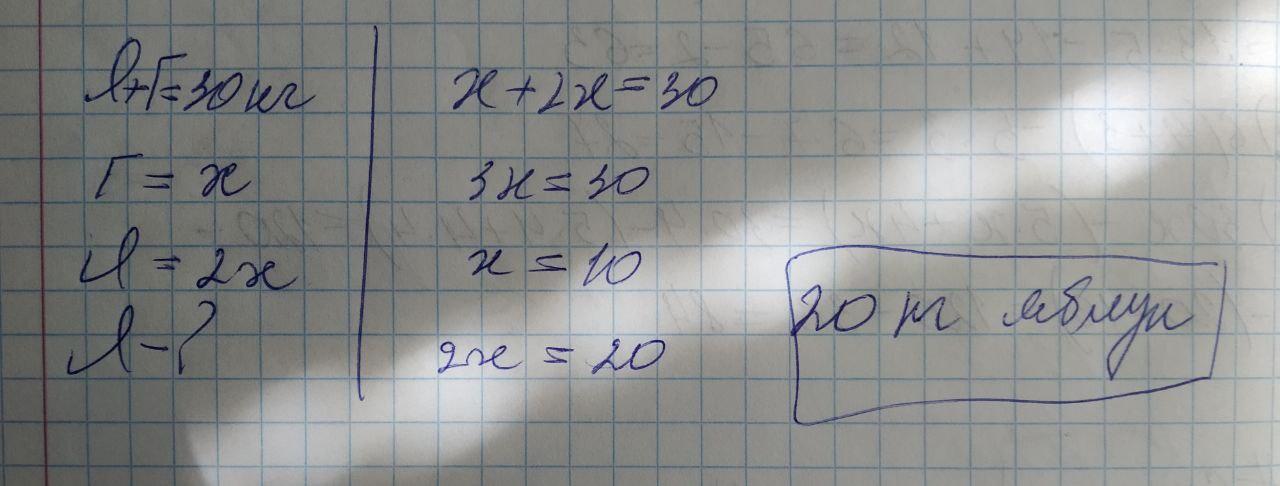 Я+Г=30 кг
Г = x
Я = 2x
Я - ?
x + 2x = 30
3x = 30
x = 10
2x = 20
20 кг яблук